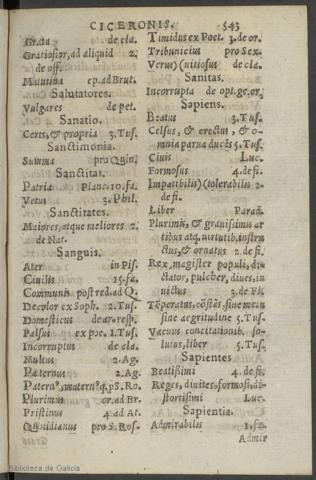 CICERONIS. 543
Grata de cla.
Gratiosior, ad aliquid 2.
de off.
Matutina ep. ad Brut.
Salutatores.
Vulgares de pet.
Sanatio.
Certa, & propria 3. Tus.
Sanctimonia.
Summa pro Quin.
Sanctitas.
Patria Planc. 10. fa.
Vetus 3. Phil.
Sanctitates.
Maiores, atque meliores 2.
de Nat.
Sanguis.
Ater in Pis.
Ciuilis 15. fa.
Communis post red. ad Q.
Decolor ex Soph. 2. Tus.
Domesticus de ar. resp.
Falsus ex poe. 1. Tus.
Incorruptus de cla.
Multus 2. Ag.
Paternus 2. Ag.
Patern9, matern9 q. pS. Ro.
Plurimus or. ad Br.
Pristinus 4. ad At.
Quotidianus pro S. Ros.
Timidus ex Poet. 3. de or.
Tribunicius pro Sex.
Verus) (uitiosus de cla.
Sanitas.
Incorrupta de opt. ge. or.
Sapiens.
Beatus 3. Tus.
Celsus, & erectus, & o-
mnia parua ducẽs 5. Tus.
Ciuis Luc.
Formosus 4. de fi.
Impatibilis) (tolerabilis 2.
de fi.
Liber Parad.
Plurimis, & grauisimis ar
tibus atq. uirtutib. instru
ctus, & ornatus 2. de fi.
Rex, magister populi, di-
ctator, pulcher, diues, in
uictus 3. de Fi.
Tẽperatus, cõstãs, sine metu
sine aegritudine 5. Tus.
Vacuus concitationib. so-
lutus, liber 5. Tus.
Sapientes
Beatißimi 4. de fi.
Reges, diuites, formosi, di-
stortißimi Luc.
Sapientia.
Admirabilis 1. fa.
Admir
Biblioteca de Galicia